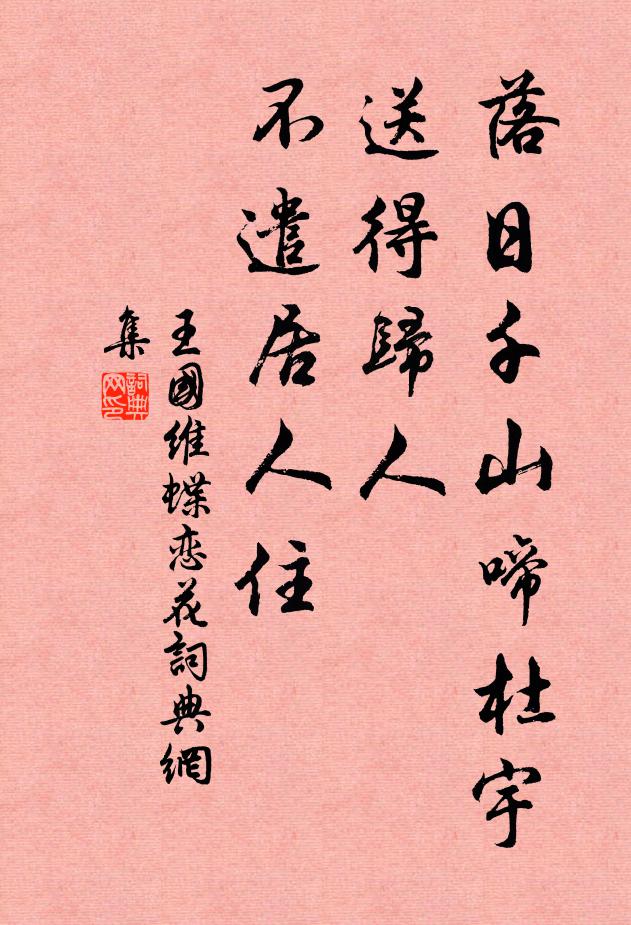 落日千山啼杜宇
送得歸人
不遣居人住
王國維蝶恋花詞典網
集
詞典
网印